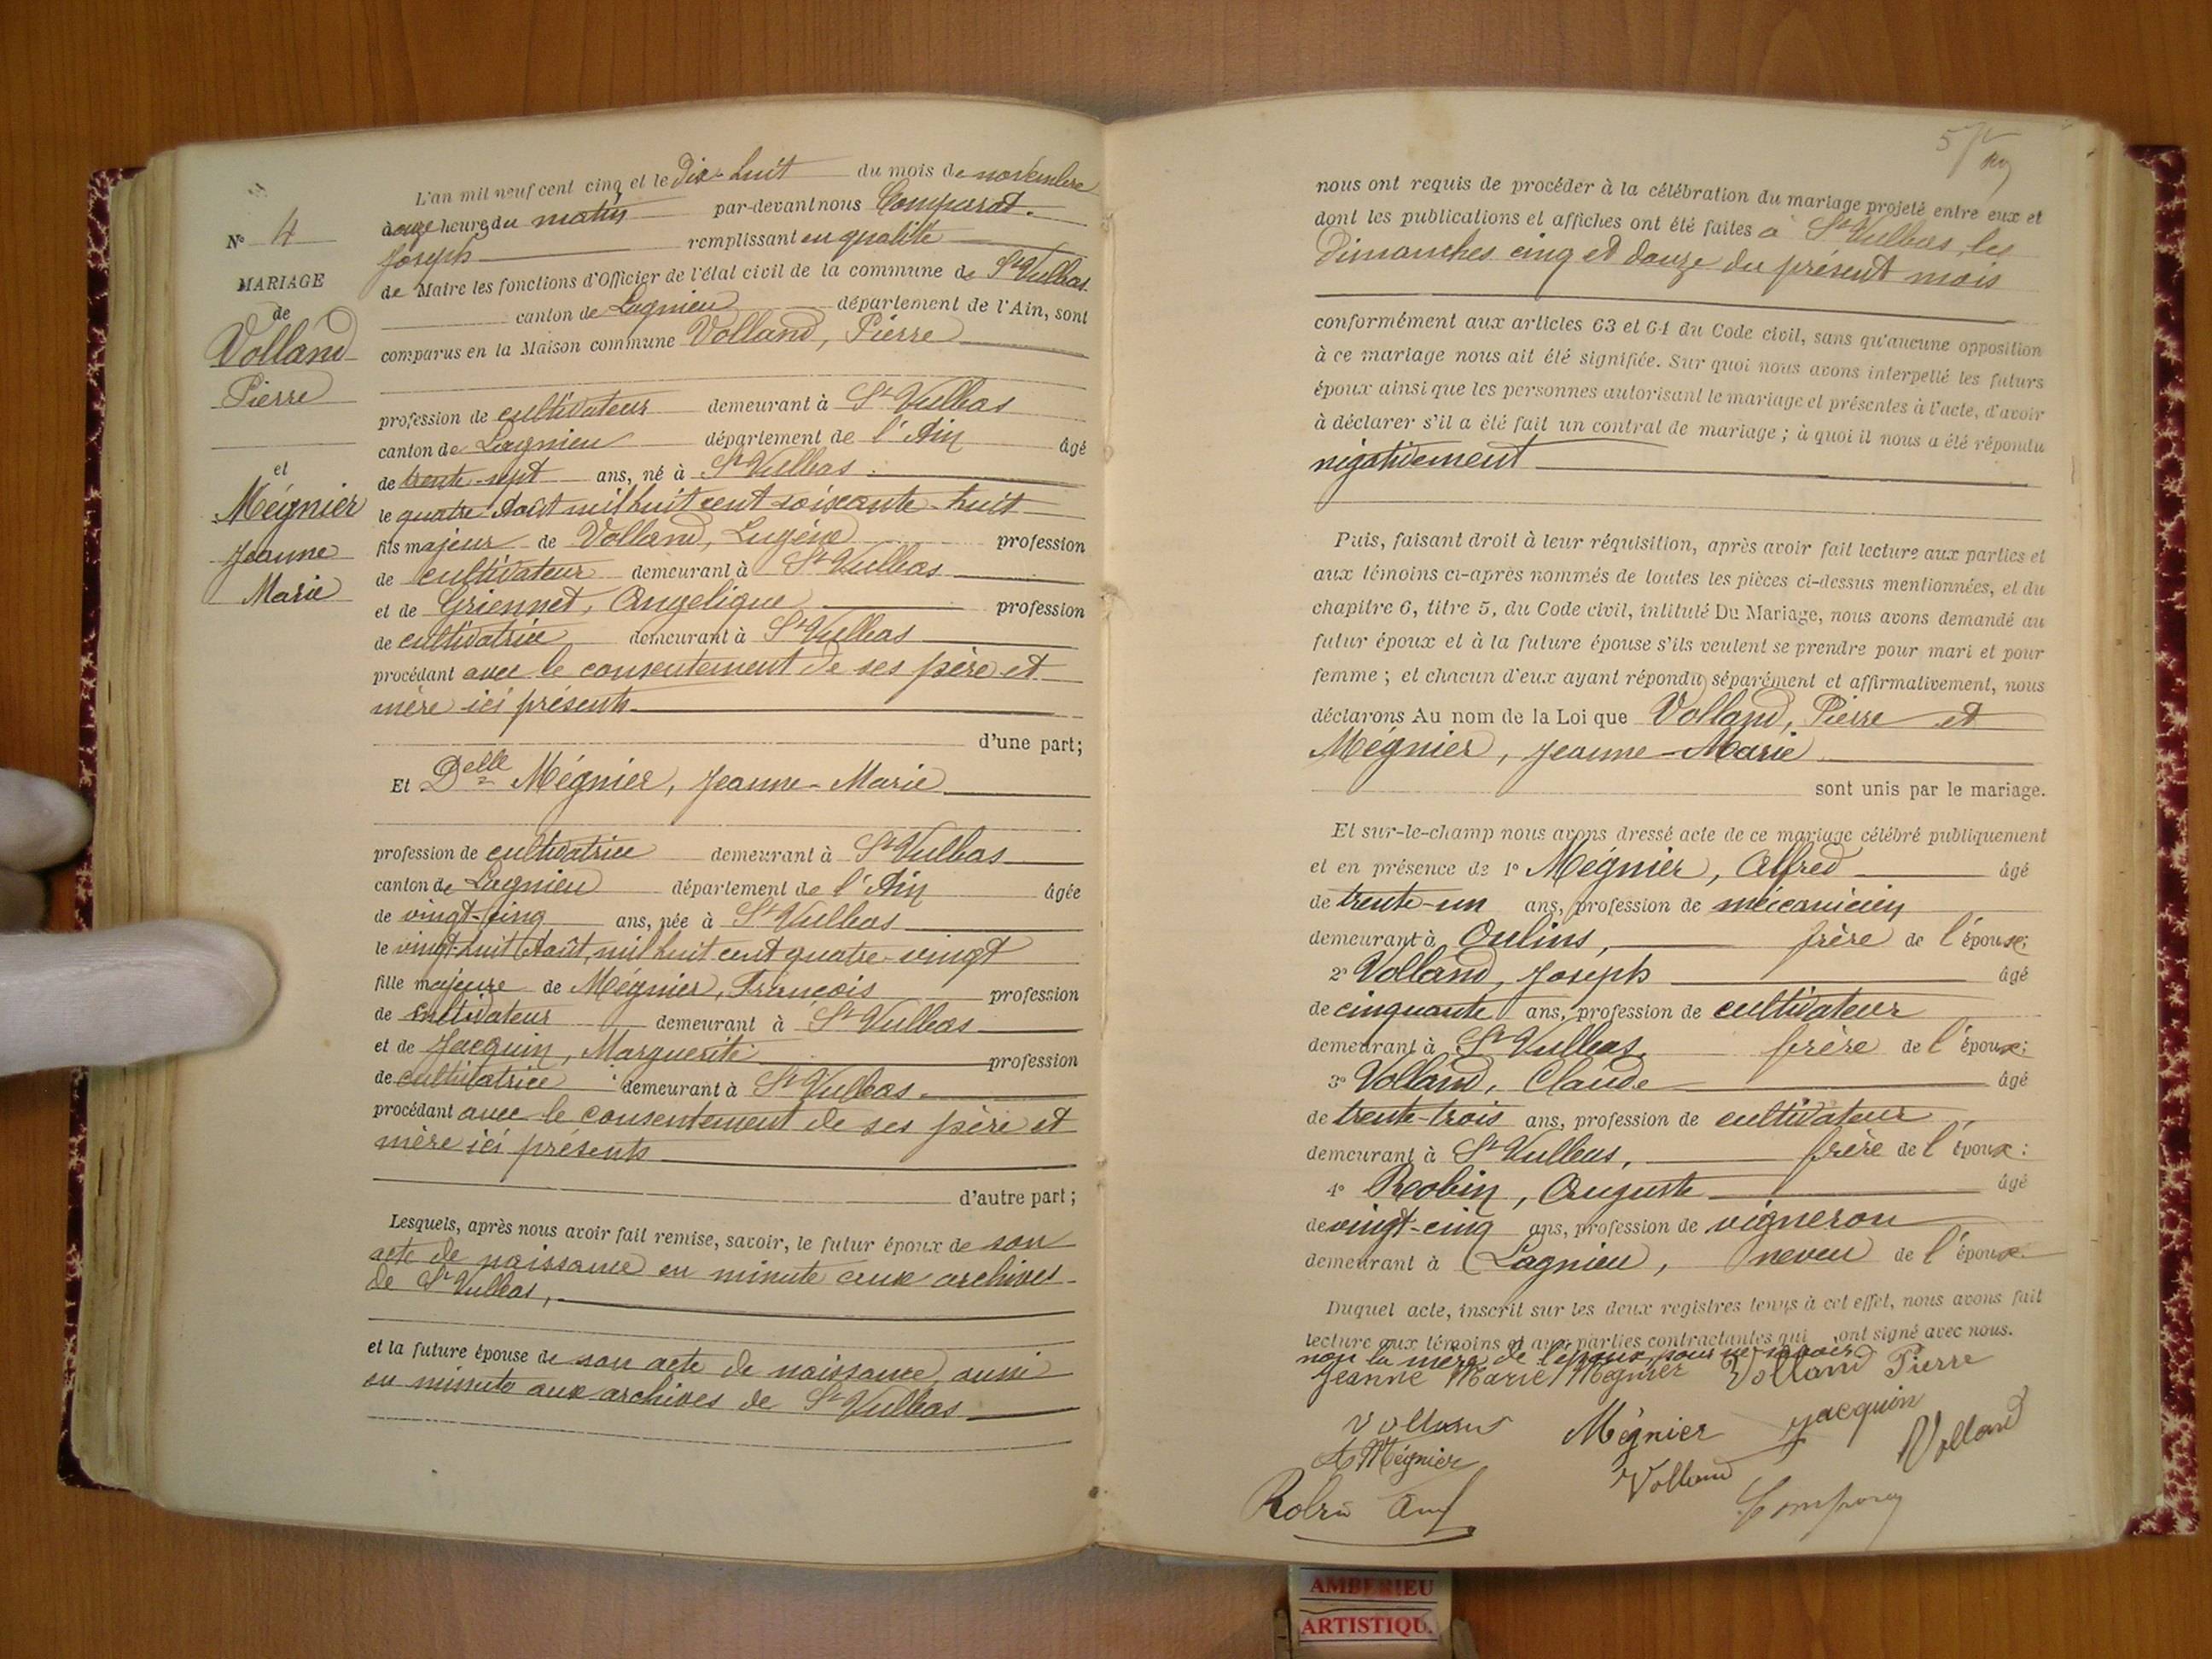 N° 4
MARIAGE
de
Volland
Pierre
et
Mégnier
Jeanne
Marie
L'an mil neuf cent cinq et le Dix-huit du mois de novembre
à onze heures du matin par-devant nous Comparat
Joseph remplissant en qualité
de Maire les fonctions d'Officier de l'état civil de la commune de St Vulbas
canton de Lagnieu département de l'Ain, sont
comparus en la Maison commune Volland, Pierre
profession de cultivateur demeurant à St Vulbas
canton de Lagnieu département de l'Ain âgé
de trente-sept ans, né à St Vulbas
le quatre Août mil huit cent soixante-huit
fils majeur de Volland, Eugène profession
de cultivateur demeurant à St Vulbas
et de Griennet, Angelique profession
de cultivatrice demeurant à St Vulbas
procédant avec le consentement de ses père et
mère ici présents
d'une part;
Et Delle Mégnier, Jeanne-Marie
profession de cultivatrice demeurant à St Vulbas
canton de Lagnieu département de l'Ain âgée
de vingt-cinq ans, née à St Vulbas
le vingt-huit Août, mil huit cent quatre-vingt
fille majeure de Mégnier, François profession
de cultivateur demeurant à St Vulbas
et de Jacquin, Marguerite profession
de cultivatrice demeurant à St Vulbas
procédant avec le consentement de ses père et
mère ici présents
d'autre part;
Lesquels, après nous avoir fait remise, savoir, le futur époux de son
acte de naissance en minute aux archives
de St Vulbas,
et la future épouse de son acte de naissance, aussi
en minute aux archives de St Vulbas
nous ont requis de procéder à la célébration du mariage projeté entre eux et
dont les publications et affiches ont été faites à St Vulbas, les
Dimanches cinq et douze du présent mois
conformément aux articles 63 et 64 du Code civil, sans qu'aucune opposition
à ce mariage nous ait été signifiée. Sur quoi nous avons interpellé les futurs
époux ainsi que les personnes autorisant le mariage et présentes à l'acte, d'avoir
à déclarer s'il a été fait un contrat de mariage; à quoi il nous a été répondu
négativement
Puis, faisant droit à leur réquisition, après avoir fait lecture aux parties et
aux témoins ci-après nommés de toutes les pièces ci-dessus mentionnées, et du
chapitre 6, titre 5, du Code civil, intitulé Du Mariage, nous avons demandé au
futur époux et à la future épouse s'ils veulent se prendre pour mari et pour
femme; et chacun d'eux ayant répondu séparément et affirmativement, nous
déclarons Au nom de la Loi que Volland, Pierre et
Mégnier, Jeanne-Marie
sont unis par le mariage.
Et sur-le-champ nous avons dressé acte de ce mariage célébré publiquement
et en présence de 1° Mégnier, Alfred âgé
de trente-un ans, profession de mécanicien
demeurant à Oulins, frère de l'épouse;
2° Volland, Joseph âgé
de cinquante ans, profession de cultivateur
demeurant à St Vulbas, frère de l'époux;
3° Volland, Claude âgé
de trente-trois ans, profession de cultivateur
demeurant à St Vulbas, frère de l'époux:
4° Robin, Auguste âgé
de vingt-cinq ans, profession de vigneron
demeurant à Lagnieu, neveu de l'époux.
Duquel acte, inscrit sur les deux registres tenus à cet effet, nous avons fait
lecture aux témoins et aux parties contractantes qui ont signé avec nous.
non la mère de l'époux, pour ne savoir
Jeanne Marie Mégnier Volland Pierre
Volland Mégnier Jacquin
A Mégnier Volland Volland
Robin Aug
AMBERIEU
ARTISTIQU